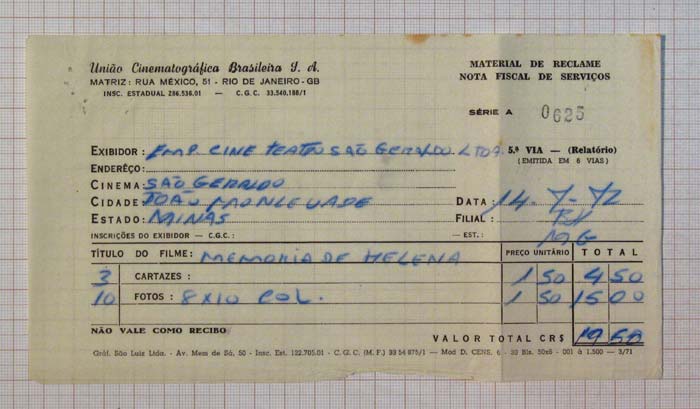 União Cinematográfica Brasileira S. A.
MATRIZ: RUA MÉXICO, 51 - RIO DE JANEIRO-GB
INSC. ESTADUAL 286.536.01 — C.G.C. 33.540.188/1
MATERIAL DE RECLAME
NOTA FISCAL DE SERVIÇOS
SÉRIE A 0625
EXIBIDOR: EMP. CINE TEATRO SÃO GERALDO LTDA.
5.ª VIA — (Relatório)
(EMITIDA EM 6 VIAS)
ENDERÊÇO:
CINEMA: SÃO GERALDO
CIDADE: JOÃO MONLEVADE DATA: 14-7-72
ESTADO: MINAS FILIAL: BH
INSCRIÇÕES DO EXIBIDOR — C.G.C.: — EST.: MG
TÍTULO DO FILME: MEMORIA DE HELENA PREÇO UNITÁRIO TOTAL
3 CARTAZES: 1 50 4 50
10 FOTOS: 8X10 COL. 1 50 15 00
NÃO VALE COMO RECIBO
VALOR TOTAL CR$ 19 50
Gráf. São Luiz Ltda. - Av. Mem de Sá, 50 - Insc. Est. 122.705.01 - C.G.C. (M.F.) 33 54 875/1 — Mod D. CENS. 6 - 30 Bls. 50x6 - 001 à 1.500 — 3/71